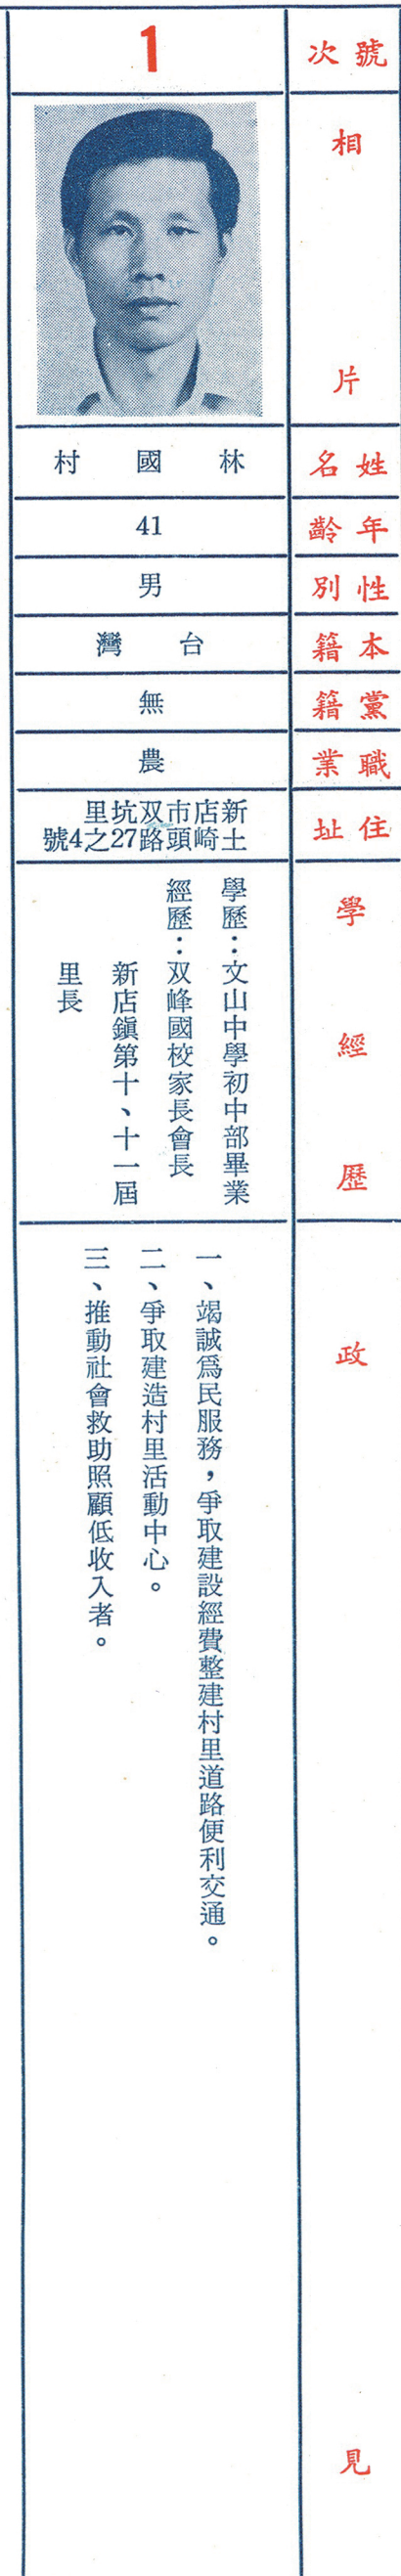 號次
1
相片
姓名
林國村
年齡
41
性別
男
本籍
台灣
黨籍
無
職業
農
住址
新店市双坑里
土崎頭路27之4號
學經歷
學歷：文山中學初中部畢業
經歷：双峰國校家長會長
新店鎭第十、十一屆
里長
政見
一、竭誠爲民服務，爭取建設經費整建村里道路便利交通。
二、爭取建造村里活動中心。
三、推動社會救助照顧低收入者。